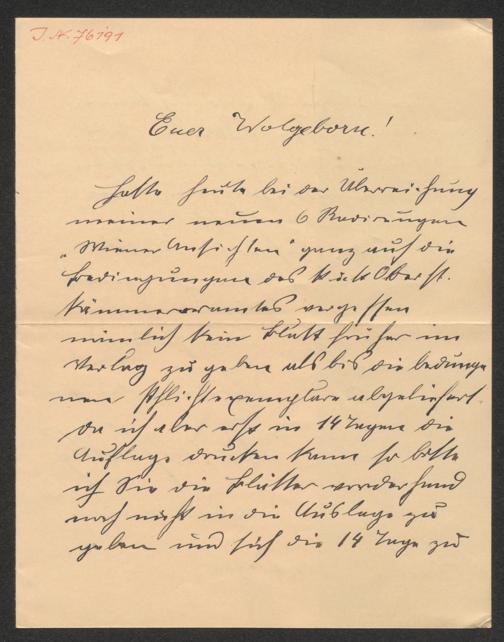 J. N. 76191
Euer Wolgeborn!
Hatte heute bei der Überreichung
meiner neuen 6 Radirungen
„Wiener Ansichten" ganz auf die
Bedingungen des k u k Oberst.
Kämmereramtes vergessen
nämlich kein Blatt früher im
Verlag zu geben als bis die bedunge
nen Pflichtexemplare abgeliefert.
Da ich aber erst in 14 Tagen die
Auflage drucken kann so bitte
ich Sie die Blätter vorderhand
noch nicht in die Auslage zu
geben und sich die 14 Tage zu